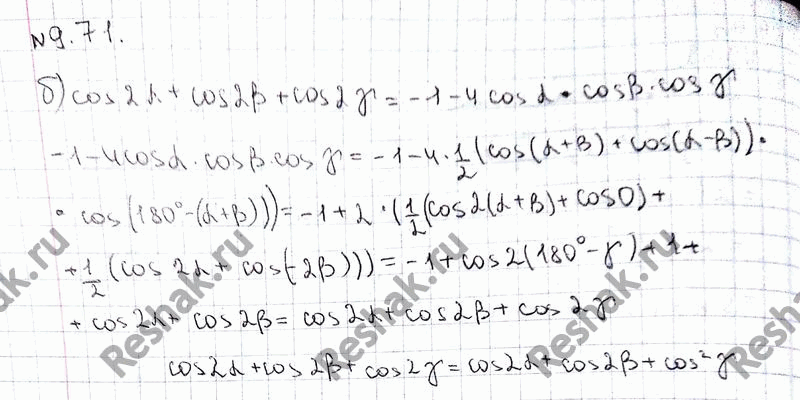 №9.71.
б) cos2α + cos2β + cos2γ = -1-4cosα · cosβ · cosγ
-1-4cosα · cosβ · cosγ = -1-4 · 1/2 (cos(α+β) + cos(α-β)) ·
· cos(180°-(α+β))) = -1+2 · (1/2(cos2(α+β) + cos0) +
+ 1/2 (cos2α + cos(-2β))) = -1+cos2(180°-γ) + 1 +
+ cos2α + cos2β = cos2α + cos2β + cos2γ
cos2α + cos2β + cos2γ = cos2α + cos2β + cos²γ
Reshak.ru
Reshak.ru
Reshak.ru
Reshak.ru